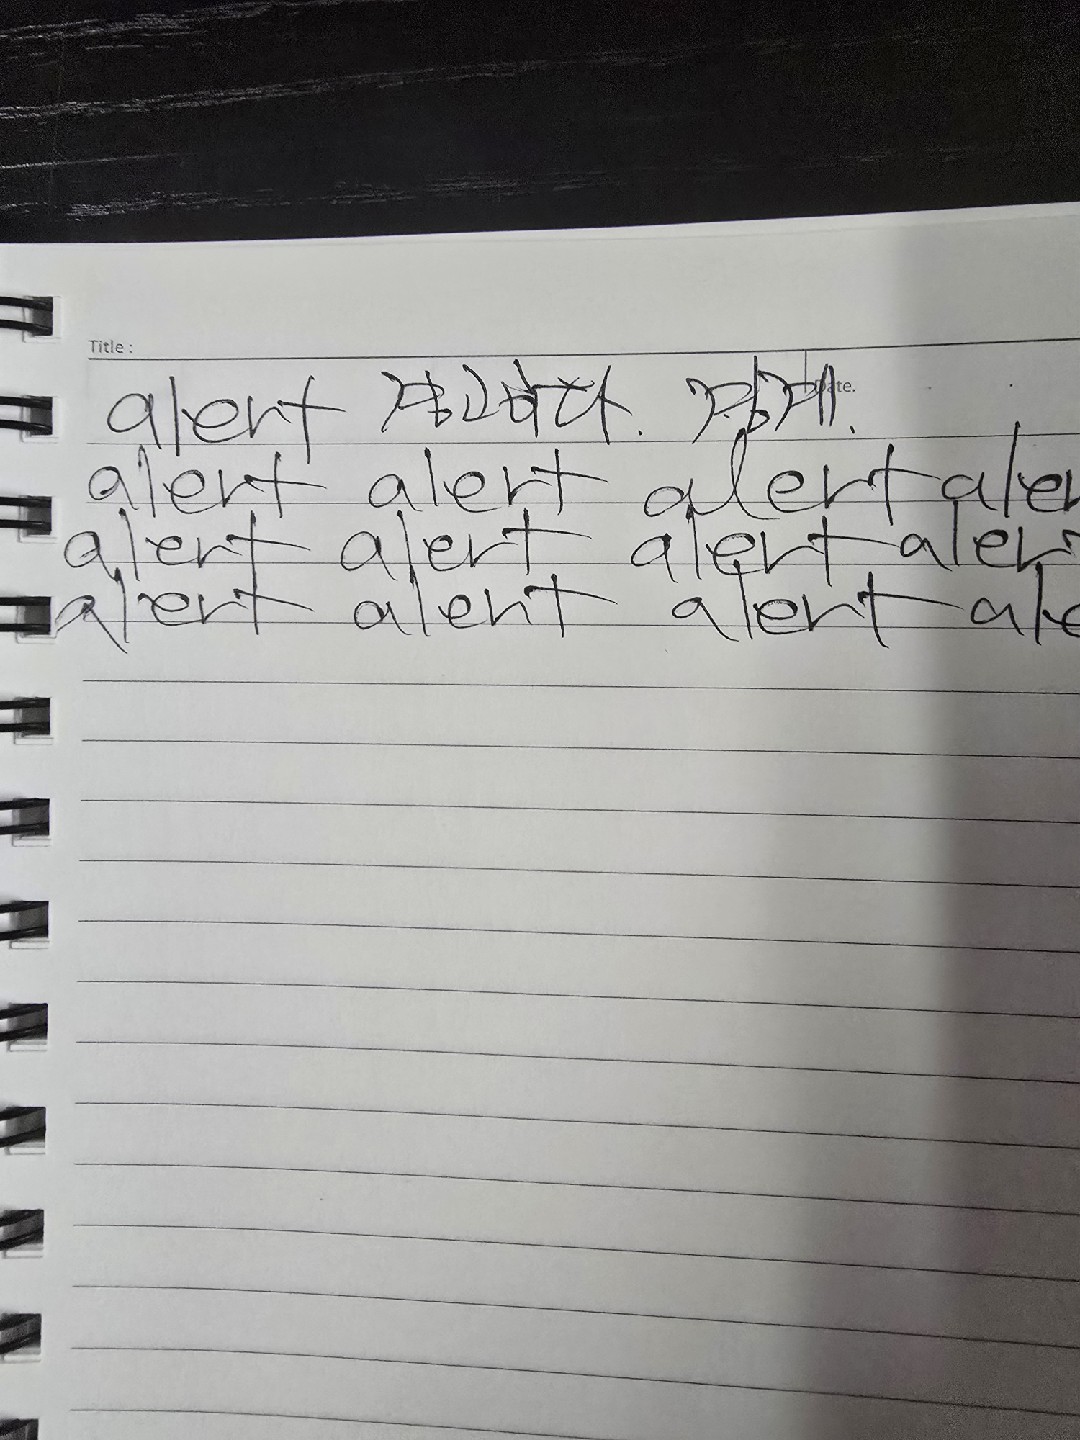 Title :
Date.
alert 경고하다. 경계.
alert alert alert aler
alert alert alert alert
alert alert alert ale